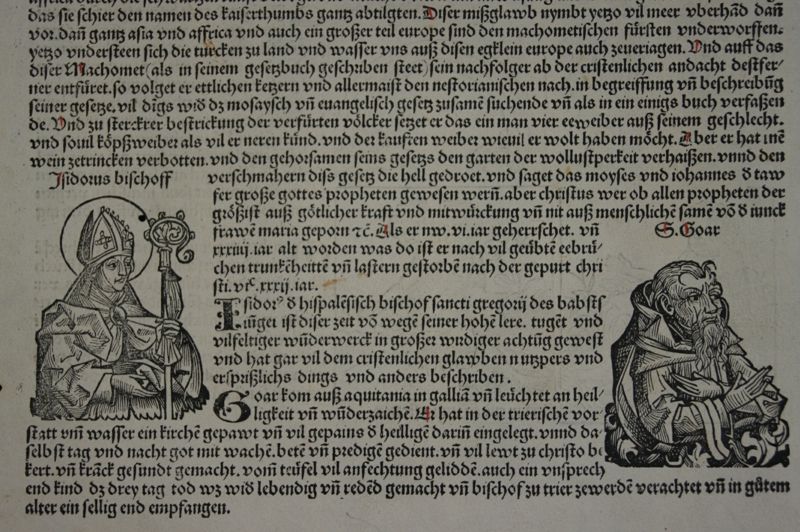 das sie schier den namen des kaiserthumbs gantz abtilgten. Diser mißglawb nymbt yetzo vil meer vberhãd dañ
vor. dañ gantz asia vnd affrica vnd auch ein großer teil europe sind den machometischen fürsten vnderworffen.
yetzo vndersteen sich die türcken zu land vnd wasser vns auß disen egklein europe auch zeueriagen. Vnd auff das
diser Machomet (als in seinem gesetzbuch geschriben steet) sein nachfolger ab der cristenlichen andacht destfer-
ner entfüret. so volget er ettlichen ketzern vnd allermaist den nestorianischen nach. in begreiffung vñ beschreibũg
seiner gesetze. vil dĩgs wid dz mosaysch vñ euangelisch gesetz zusamẽ süchende vñ als in ein einigs buch verfaßen
de. Vnd zu stercker bestrickung der verfürten völcker setzet er das ein man vier eeweiber auß seinem geschlecht.
vnd souil köpßweiber als vil er neren künd. vnd der kaufften weiber wieuil er wolt haben möcht. Aber er hat inẽ
wein zetrincken verbotten. vnd den gehorsamen seins gesetzs den garten der wollustperkeit verhaißen. vnnd den
Jsidorus bischoff
verschmahern diss gesetz die hell gedroet. vnd saget das moyses vnd iohannes d taw
fer große gottes propheten gewesen wern̄. aber christus wer ob allen propheten der
größist auß götlicher kraft vnd mitwürckung vñ nit auß menschlichẽ samẽ võ d iunck
frawẽ maria geporn ⁊c̃. Als er nw. vi. iar geherrschet. vñ
S. Goar
xxxiiij. iar alt worden was do ist er nach vil geübtẽ eebrü-
chen trunkẽheittẽ vñ lastern gestorbẽ nach der gepurt chri
sti. vjc. xxxij. iar.
Jsidorꝰ d hispalẽsisch bischof sancti gregorij des babsts
iũger ist diser zeit võ wegẽ seiner hohẽ lere. tugẽt vnd
vilfeltiger wũderwerck in großer wirdiger achtũg gewest
vnd hat gar vil dem cristenlichen glawben nutzpers vnd
ersprißlichs dings vnd anders beschriben.
Goar kom auß aquitania in galliã vñ leüchtet an heil-
ligkeit vñ wũderzaichẽ. Er hat in der trierischẽ vor
statt vm̄ wasser ein kirchẽ gepawt vñ vil gepains d heilligẽ darin̄ eingelegt. vnnd da-
selbst tag vnd nacht got mit wachẽ. betẽ vñ predigẽ gedient. vñ vil lewt zu christo be
kert. vñ krãck gesundt gemacht. vom̄ teüfel vil anfechtung geliddẽ. auch ein vnsprech
end kind dz drey tag tod wz wid lebendig vñ redẽd gemacht vñ bischof zu trier zewerdẽ verachtet vñ in gůtem
alter ein sellig end empfangen.